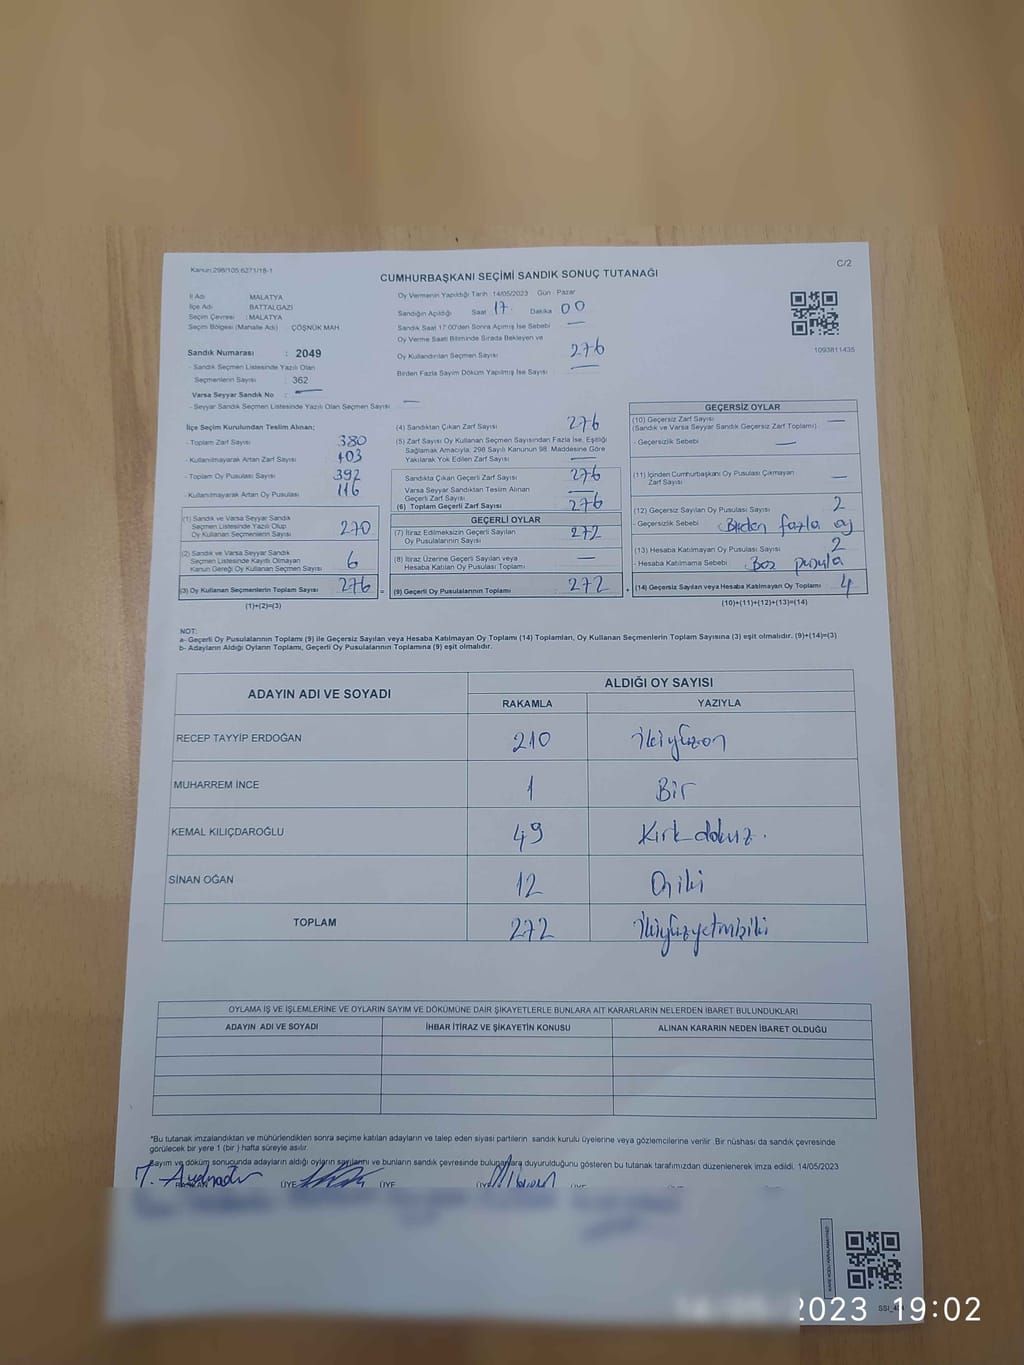 Kanun:298/105;6271/18-1
C/2
CUMHURBAŞKANI SEÇİMİ SANDIK SONUÇ TUTANAĞI
İl Adı : MALATYA
İlçe Adı : BATTALGAZİ
Seçim Çevresi : MALATYA
Seçim Bölgesi (Mahalle Adı) : ÇÖŞNÜK MAH
Sandık Numarası : 2049
- Sandık Seçmen Listesinde Yazılı Olan
Seçmenlerin Sayısı : 362
Varsa Seyyar Sandık No :
- Seyyar Sandık Seçmen Listesinde Yazılı Olan Seçmen Sayısı :
Oy Vermenin Yapıldığı Tarih :14/05/2023 Gün : Pazar
Sandığın Açıldığı Saat 17 Dakika 00
Sandık Saat 17:00'den Sonra Açılmış İse Sebebi
Oy Verme Saati Bitiminde Sırada Bekleyen ve
Oy Kullandırılan Seçmen Sayısı 276
Birden Fazla Sayım Döküm Yapılmış İse Sayısı :
1093811435
İlçe Seçim Kurulundan Teslim Alınan;
- Toplam Zarf Sayısı 380
- Kullanılmayarak Artan Zarf Sayısı 103
- Toplam Oy Pusulası Sayısı 392
- Kullanılmayarak Artan Oy Pusulası 116
(1) Sandık ve Varsa Seyyar Sandık
Seçmen Listesinde Yazılı Olup
Oy Kullanan Seçmenlerin Sayısı 270
(2) Sandık ve Varsa Seyyar Sandık
Seçmen Listesinde Kayıtlı Olmayan
Kanun Gereği Oy Kullanan Seçmen Sayısı 6
(3) Oy Kullanan Seçmenlerin Toplam Sayısı 276 =
(1)+(2)=(3)
(4) Sandıktan Çıkan Zarf Sayısı 276
(5) Zarf Sayısı Oy Kullanan Seçmen Sayısından Fazla İse, Eşitliği
Sağlamak Amacıyla; 298 Sayılı Kanunun 98. Maddesine Göre
Yakılarak Yok Edilen Zarf Sayısı
Sandıkta Çıkan Geçerli Zarf Sayısı 276
Varsa Seyyar Sandıktan Teslim Alınan
Geçerli Zarf Sayısı
(6) Toplam Geçerli Zarf Sayısı 276
GEÇERLİ OYLAR
(7) İtiraz Edilmeksizin Geçerli Sayılan
Oy Pusulalarının Sayısı 272
(8) İtiraz Üzerine Geçerli Sayılan veya
Hesaba Katılan Oy Pusulası Toplamı
(9) Geçerli Oy Pusulalarının Toplamı : 272 +
GEÇERSİZ OYLAR
(10) Geçersiz Zarf Sayısı
(Sandık ve Varsa Seyyar Sandık Geçersiz Zarf Toplamı)
- Geçersizlik Sebebi
(11) İçinden Cumhurbaşkanı Oy Pusulası Çıkmayan
Zarf Sayısı
(12) Geçersiz Sayılan Oy Pusulası Sayısı 2
- Geçersizlik Sebebi Birden fazla oy
(13) Hesaba Katılmayan Oy Pusulası Sayısı 2
- Hesaba Katılmama Sebebi Boş pusula
(14) Geçersiz Sayılan veya Hesaba Katılmayan Oy Toplamı 4
(10)+(11)+(12)+(13)=(14)
NOT:
a- Geçerli Oy Pusulalarının Toplamı (9) ile Geçersiz Sayılan veya Hesaba Katılmayan Oy Toplamı (14) Toplamları, Oy Kullanan Seçmenlerin Toplam Sayısına (3) eşit olmalıdır. (9)+(14)=(3)
b- Adayların Aldığı Oyların Toplamı, Geçerli Oy Pusulalarının Toplamına (9) eşit olmalıdır.
ADAYIN ADI VE SOYADI
ALDIĞI OY SAYISI
RAKAMLA YAZIYLA
RECEP TAYYİP ERDOĞAN 210 İkiyüzon
MUHARREM İNCE 1 Bir
KEMAL KILIÇDAROĞLU 49 Kırk dokuz.
SİNAN OĞAN 12 Oniki
TOPLAM 272 İkiyüzyetmişiki
OYLAMA İŞ VE İŞLEMLERİNE VE OYLARIN SAYIM VE DÖKÜMÜNE DAİR ŞİKAYETLERLE BUNLARA AİT KARARLARIN NELERDEN İBARET BULUNDUKLARI
ADAYIN ADI VE SOYADI İHBAR İTİRAZ VE ŞİKAYETİN KONUSU ALINAN KARARIN NEDEN İBARET OLDUĞU
*Bu tutanak imzalandıktan ve mühürlendikten sonra seçime katılan adayların ve talep eden siyasi partilerin sandık kurulu üyelerine veya gözlemcilerine verilir. Bir nüshası da sandık çevresinde
görülecek bir yere 1 (bir) hafta süreyle asılır.
Sayım ve döküm sonucunda adayların aldığı oyların sayılarını ve bunların sandık çevresinde bulunanlara duyurulduğunu gösteren bu tutanak tarafımızdan düzenlenerek imza edildi. 14/05/2023
BAŞKAN ÜYE ÜYE ÜYE ÜYE
14/05/2023 19:02